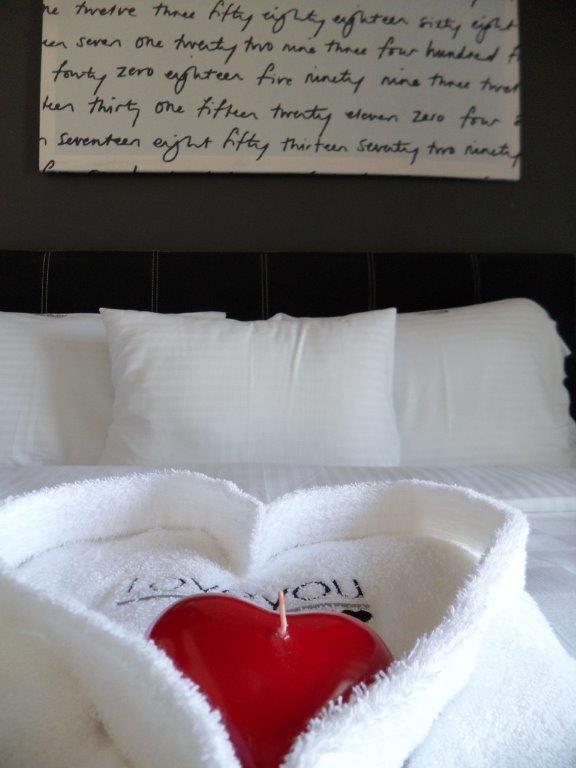 ne twelve three fifty eighty eighteen sixty eight
een seven one twenty two nine three four hundred f
fourty zero eighteen five ninety nine three twel
teen thirty one fifteen twenty eleven zero four
seventeen eight fifty thirteen seventy two ninety